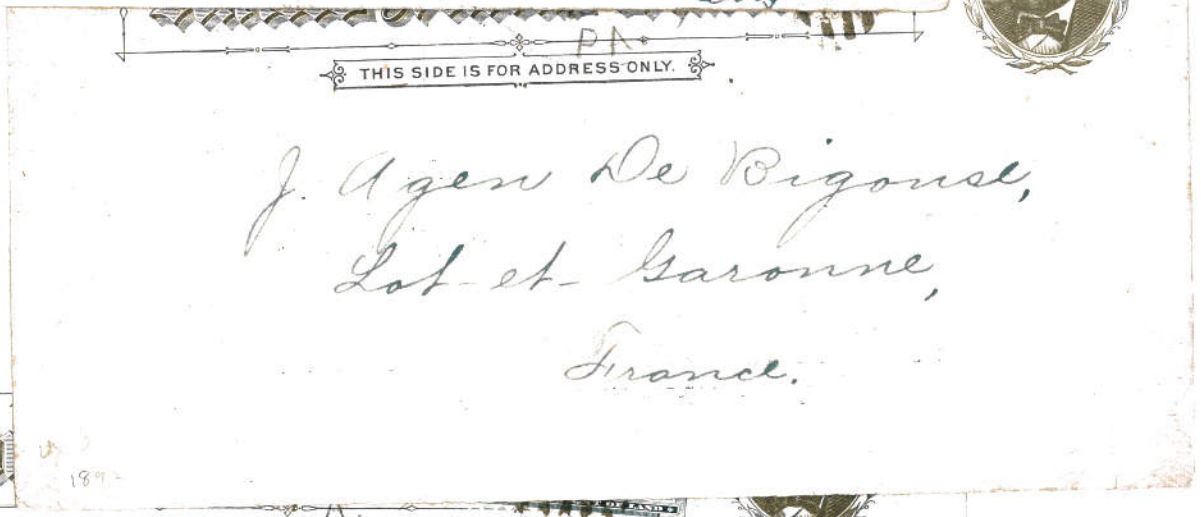 PA
THIS SIDE IS FOR ADDRESS ONLY.
J. Agen De Bigouse,
Lot-et-Garonne,
France.